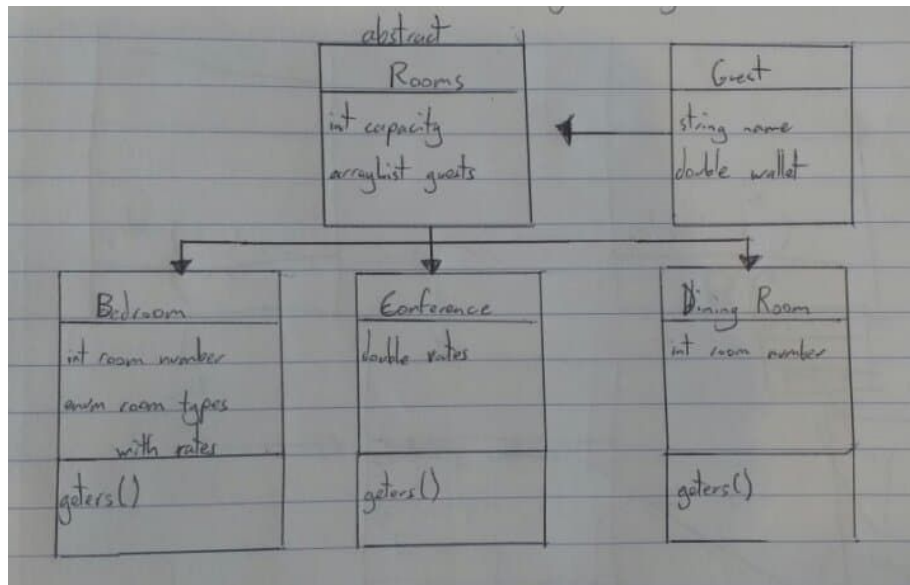 abstract
Rooms
int capacity
arrayList guests
Guest
string name
double wallet
Bedroom
int room number
enum room types
with rates
geters()
Conference
double rates
geters()
Dining Room
int room number
geters()